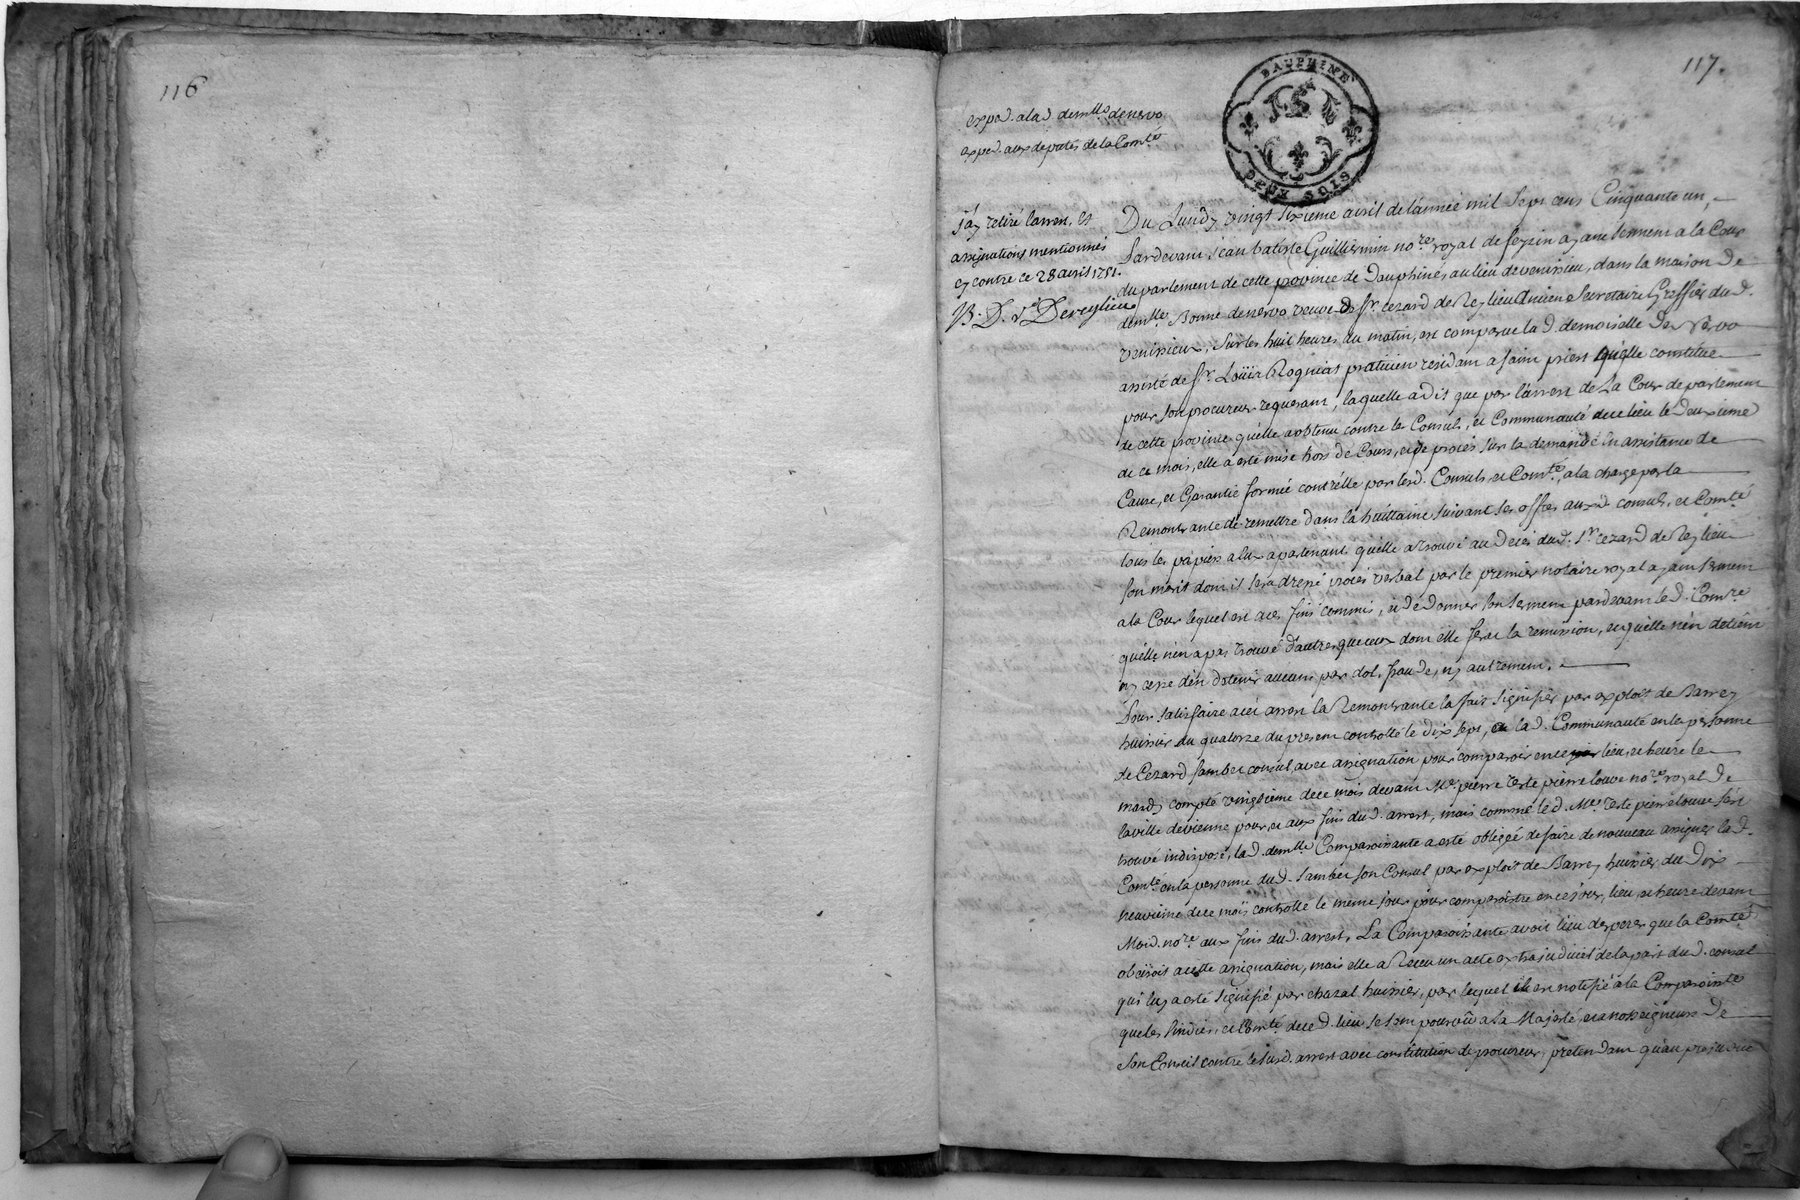 116
117.
DAUPHINÉ
DEUX SOLS
exped. a lad. demlle denervo
exped. aux deputés de la Comté
j'ay retiré larrest, et
assignations mentionnés
cy contre ce 28 avril 1751.
B. D. ve Dereylieu
Du Lundy vingt sixieme avril de l'année mil sept cens Cinquante un,
Pardevant Jean batiste Guilliermin nore royal de feyzin ayant serment a la Cour
du parlement de cette province de Dauphiné, au lieu devenissieu, dans la maison de
demlle Bonne denervo veuve de sr. cezard de Reylieu Ancien Secretaire Greffier dud.
venissieux, sur les huit heures du matin, est comparue lad. demoiselle De Nervo
assisté de sr. Loüis Rogniat praticien residant a saint priest qu'elle constitue
pour son procureur requerant, laquelle a dit que par l'arrest de La Cour de parlement
de cette province qu'elle a obtenu contre les Consuls, et Communauté dece lieu le deuxieme
de ce mois, elle a esté mise hors de Cour, et de procés sur la demande en assistance de
Cause, et Garantie formée contr'elle par lesd. Consuls, et Comté, a la charge par la
Remontrante de remettre dans la huittaine suivant ses offres auxd. consuls, et Comté
tous les papiers a eux apartenant qu'elle a trouvé au decés dud. sr. cezard de Reylieu
son marit dont il sera dressé procés verbal par le premier notaire royal ayant serment
a la Cour lequel est a ces fins commis, et de donner son serment pardevant led. Comre
qu'elle n'en a pas trouvé d'autres que ceux dont elle fera la remission, et qu'elle n'en detient
ny cesse d'en detenir aucuns par dol, fraude, ny autrement.
Pour satisfaire acet arrest la Remontrante la fait signifier par exploit de Barrey
huissier du quatorze du present controllé le dix sept, a lad. Communauté en la personne
de Cezard Jambet consul avec assignation pour comparoir en ce lieu, et heure le
mardy compté vingtieme dece mois devant Me. pierre teste pierre louve nore royal de
laville devienne pour, et aux fins dud. arrest, mais comme led. Me. teste pierrelouve s'est
trouvé indisposé, lad. demlle Comparoissante a esté obligée de faire de nouveau assigner lad.
Comté en la personne dud. Jambet son Consul par exploit de Barrey huissier du Dix
neuvieme dece mois controllé le même jour pour comparoître en ce jour, lieu, et heure devant
Moid. nore aux fins dud. arrest, La Comparoissante avoit lieu desperer que la Comté
obeïroit acette assignation, mais elle a Receu un acte extrajudiciel de la part dud. consul
qui luy a esté signifié par chazal huissier, par lequel il est notifié a la Comparoissante
que les sindics, et Comté dece d. lieu se sont pourvû a sa Majesté, et a nosseigneurs de
son Conseil contre le susd. arrest avec constitution de procureur, pretendant qu'au prejudice